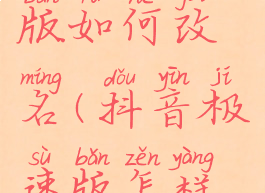 版如何改
míng dǒu yīn jí
名(抖音极
sù bǎn zěn yàng
速版怎样